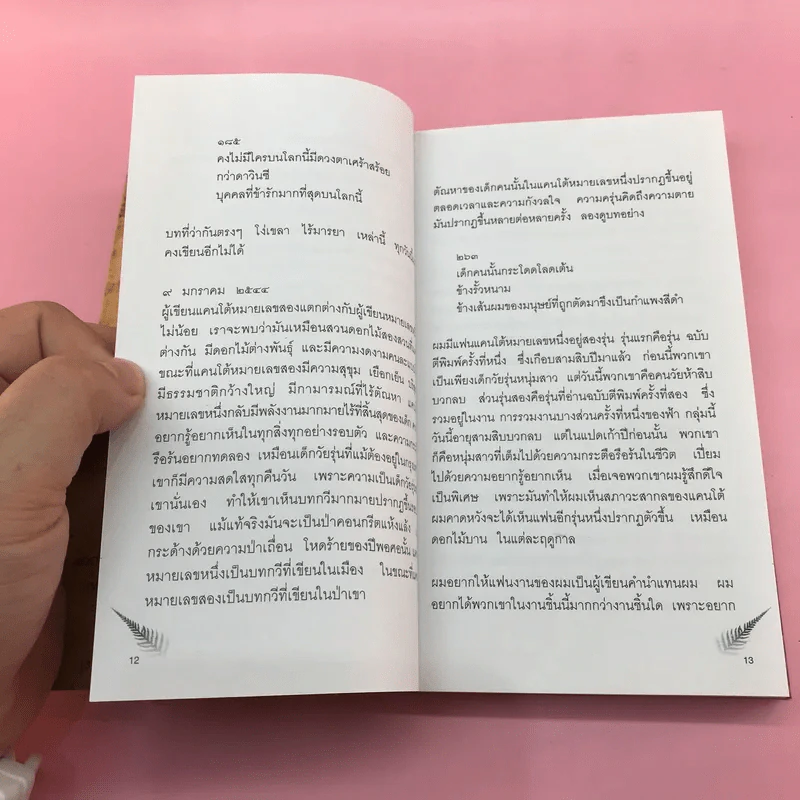 ๑๘๕
คงไม่มีใครบนโลกนี้มีดวงตาเศร้าสร้อย
กว่าดาวินซี
บุคคลที่ข้ารักมากที่สุดบนโลกนี้
บทที่ว่ากันตรงๆ โง่เขลา ไร้มารยา เหล่านี้
คงเขียนอีกไม่ได้
๙ มกราคม ๒๕๔๔
ผู้เขียนแคนโต้หมายเลขสองแตกต่างกับผู้เขียนหมายเลขหนึ่ง
ไม่น้อย เราจะพบว่ามันเหมือนสวนดอกไม้สองสวนที่
ต่างกัน มีดอกไม้ต่างพันธุ์ และมีความงดงามคนละ
ขณะที่แคนโต้หมายเลขสองมีความสุขุม เยือกเย็น
มีธรรมชาติกว้างใหญ่ มีกามารมณ์ที่ไร้ตัณหา
หมายเลขหนึ่งกลับมีพลังงานมากมายไร้ที่สิ้นสุดของเด็ก
อยากรู้อยากเห็นในทุกสิ่งทุกอย่างรอบตัว และความกระ
รือร้นอยากทดลอง เหมือนเด็กวัยรุ่นที่แม้ต้องอยู่ใน
เขาก็มีความสดใสทุกคืนวัน เพราะความเป็นเด็กวัยรุ่น
เขานั่นเอง ทำให้เขาเห็นบทกวีมากมายปรากฏขึ้น
ของเขา แม้แท้จริงมันจะเป็นป่าคอนกรีตแห้งแล้ง
กระด้างด้วยความป่าเถื่อน โหดร้ายของปีพอศอนั้น
หมายเลขหนึ่งเป็นบทกวีที่เขียนในเมือง ในขณะที่
หมายเลขสองเป็นบทกวีที่เขียนในป่าเขา
12
ตัณหาของเด็กคนนั้นในแคนโต้หมายเลขหนึ่งปรากฏขึ้นอยู่
ตลอดเวลาและความกังวลใจ ความครุ่นคิดถึงความตาย
มันปรากฏขึ้นหลายต่อหลายครั้ง ลองดูบทอย่าง
๒๖๓
เด็กคนนั้นกระโดดโลดเต้น
ข้างรั้วหนาม
ข้างเส้นผมของมนุษย์ที่ถูกตัดมาขึงเป็นกำแพงสีดำ
ผมมีแฟนแคนโต้หมายเลขหนึ่งอยู่สองรุ่น รุ่นแรกคือรุ่น ฉบับ
ตีพิมพ์ครั้งที่หนึ่ง ซึ่งเกือบสามสิบปีมาแล้ว ก่อนนี้พวกเขา
เป็นเพียงเด็กวัยรุ่นหนุ่มสาว แต่วันนี้พวกเขาคือคนวัยห้าสิบ
บวกลบ ส่วนรุ่นสองคือรุ่นที่อ่านฉบับตีพิมพ์ครั้งที่สอง ซึ่ง
รวมอยู่ในงาน การรวมงานบางส่วนครั้งที่หนึ่งของฟ้า กลุ่มนี้
วันนี้อายุสามสิบบวกลบ แต่ในแปดเก้าปีก่อนนั้น พวกเขา
ก็คือหนุ่มสาวที่เต็มไปด้วยความกระตือรือร้นในชีวิต เปี่ยม
ไปด้วยความอยากรู้อยากเห็น เมื่อเจอพวกเขาผมรู้สึกดีใจ
เป็นพิเศษ เพราะมันทำให้ผมเห็นสภาวะสากลของแคนโต้
ผมคาดหวังจะได้เห็นแฟนอีกรุ่นหนึ่งปรากฏตัวขึ้น เหมือน
ดอกไม้บาน ในแต่ละฤดูกาล
ผมอยากให้แฟนงานของผมเป็นผู้เขียนคำนำแทนผม ผม
อยากได้พวกเขาในงานชิ้นนี้มากกว่างานชิ้นใด เพราะอยาก
13